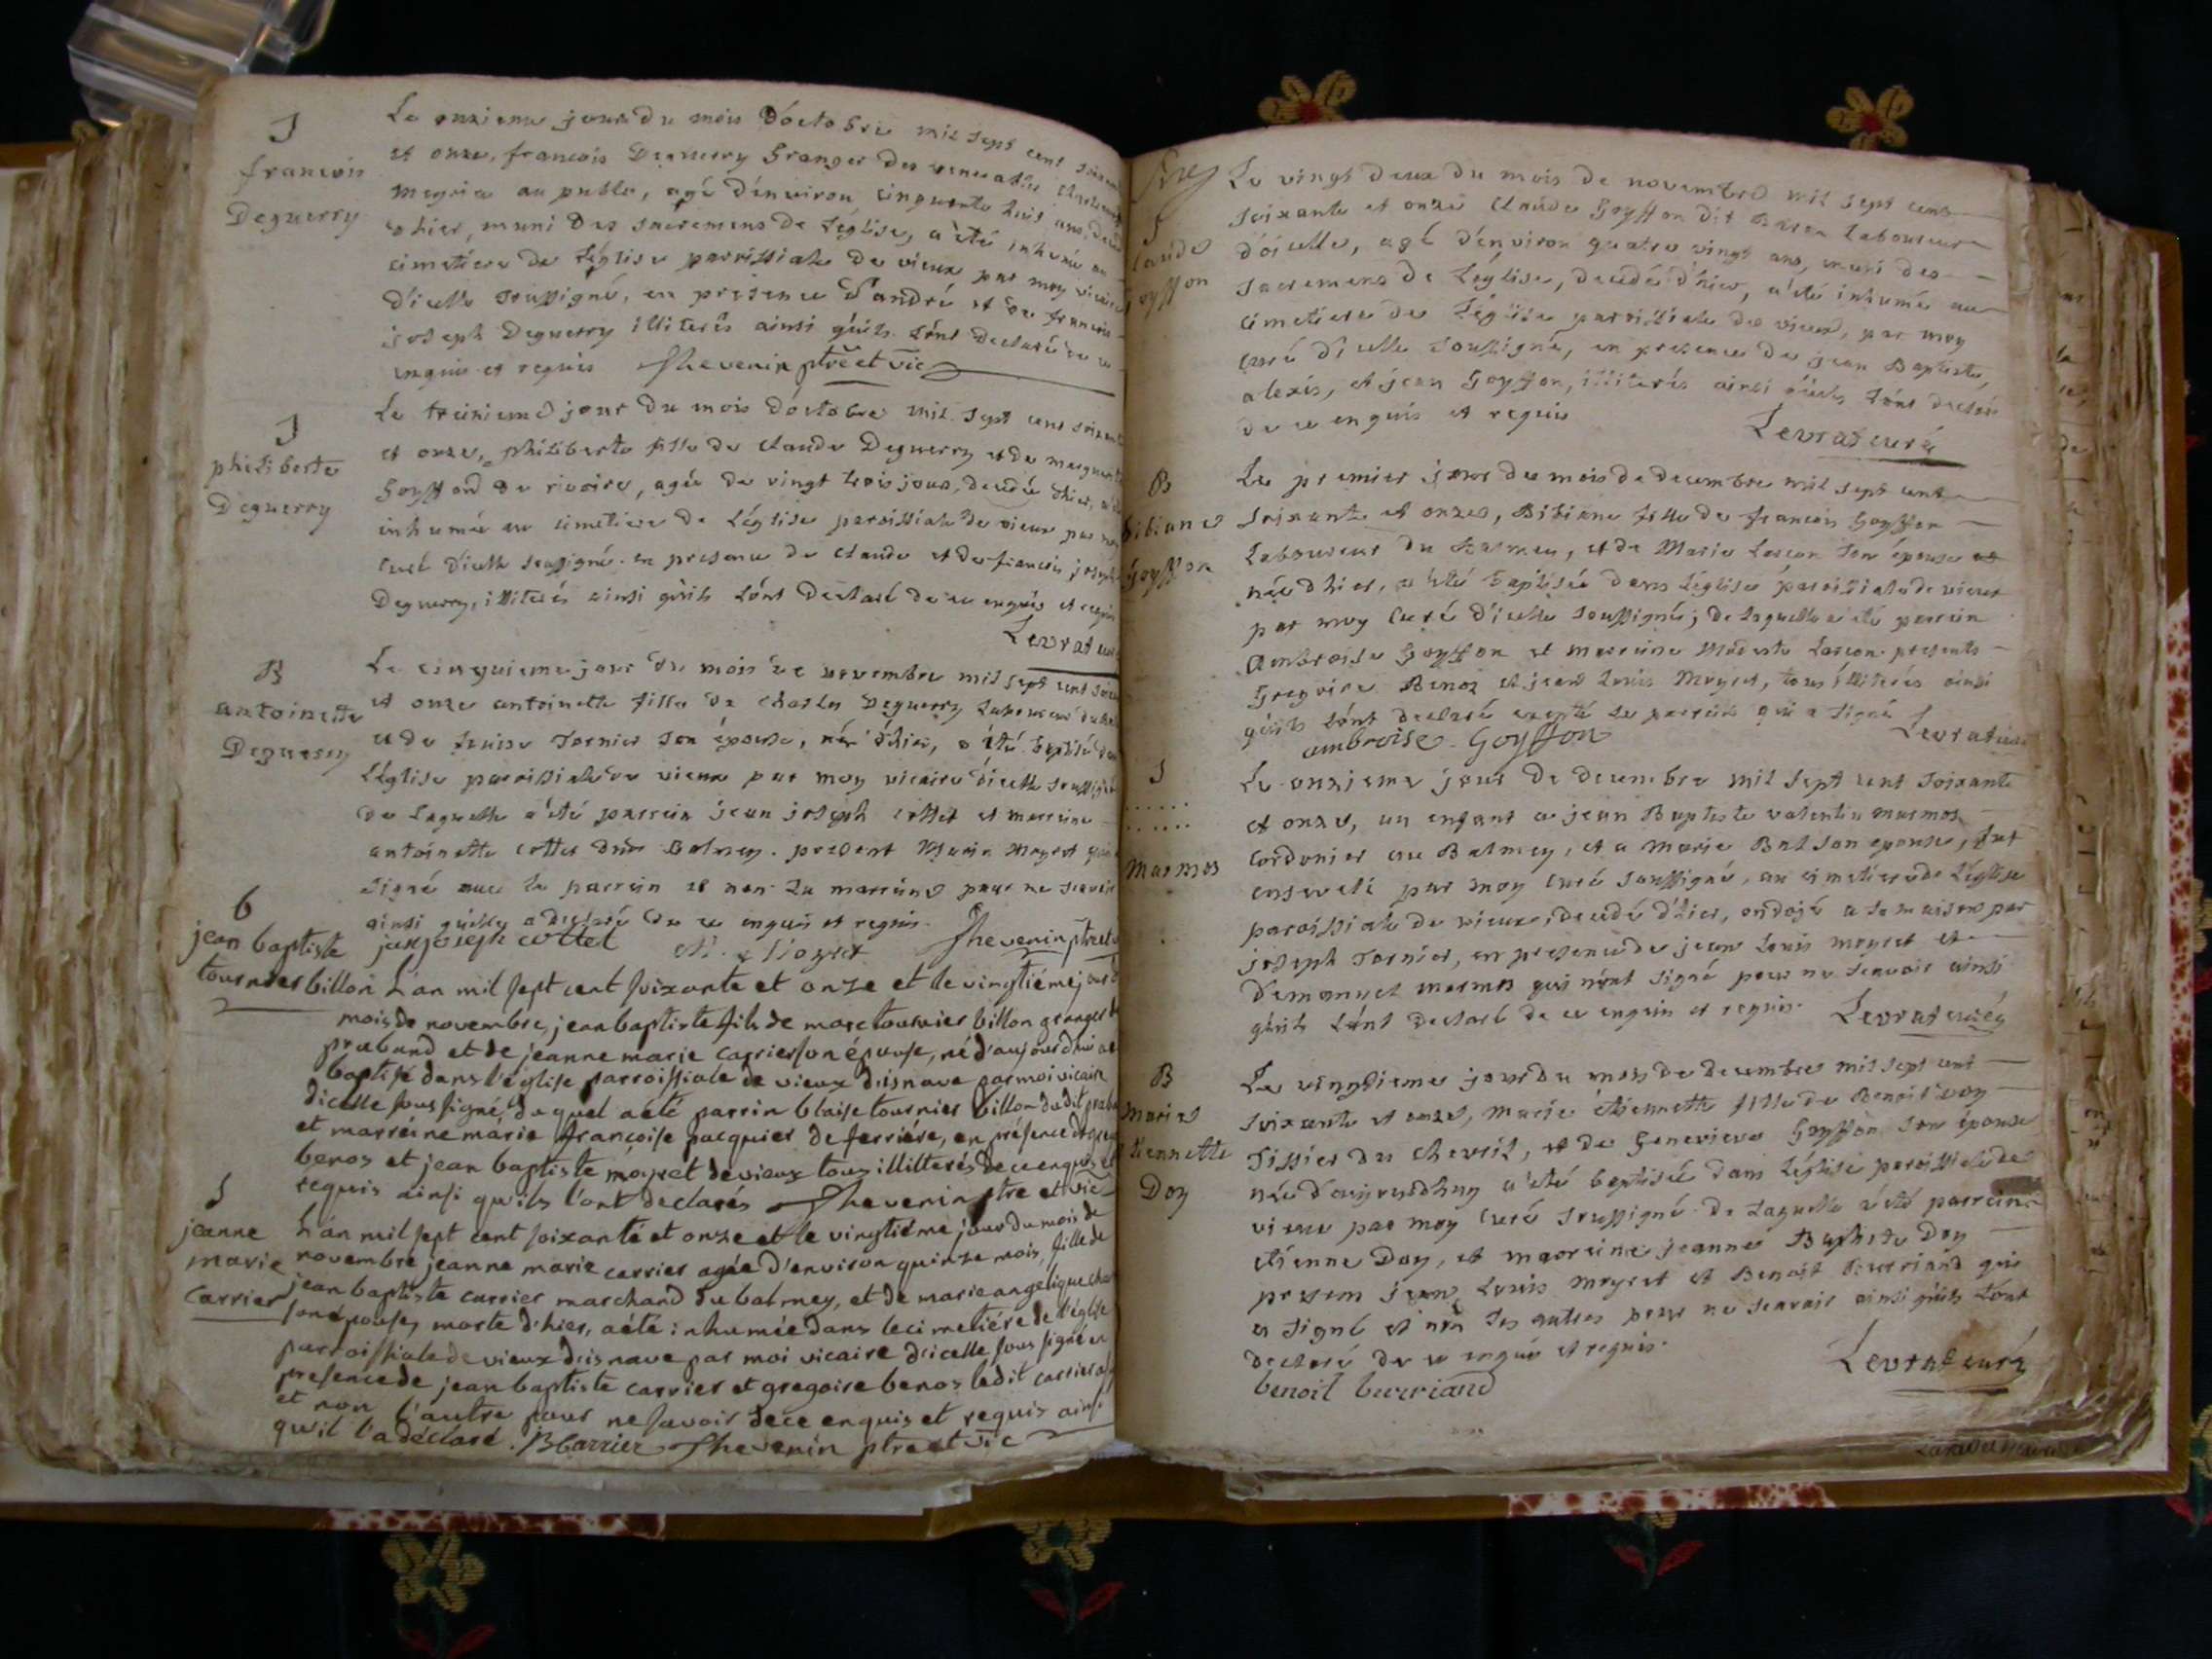 S
francois
Deguerry
Le onzieme jour du mois d'octobre mil sept cent
et onze, francois Deguerry Granger des venerables
Meyria au public, agé d'environ cinquante huit ans,
d'hier, muni des sacremens de l'église, a été inhumé au
cimetiere de l'église parrissiale de vieux par moy vicaire
d'icelle soussigné, en presence d'andré et de francois
joseph Deguerry illiterés ainsi qu'ils l'ont declaré de ce
enquis et requis Thevenin ptre et vic
S
philiberte
Deguerry
Le treizieme jour du mois d'octobre mil sept cent
et onze, philiberte fille de claude Deguerry et de
Goyffond de rivoire, agée de vingt trois jour, decedée d'hier,
inhumée au cimetiere de l'église paroissiale de vieux par
curé d'icelle soussigné en presence de claude et de francois joseph
Deguerry, illiterés ainsi qu'ils l'ont declaré de ce enquis et requis
Levrat curé
B
antoinette
Deguerry
Le cinquieme jour du mois de novembre mil sept cent
et onze antoinette fille de charles Deguerry Laboureur
et de louise Tornier son épouse, née d'hier, a été baptisée
l'église paroissiale de vieux par moy vicaire d'icelle soussigné
de laquelle a été parrein jean joseph cottet et marreine
antoinette cottet du Balmey. present Marin Moyret qui
signé avec le parrein et non la marreine pour ne scavoir
ainsi qu'elle a declaré de ce enquis et requis.
jan joseph cottet M. Moyret Thevenin ptre et
6
jean baptiste
tournier billon
L'an mil sept cent soixante et onze et le vingtiéme jour
mois de novembre, jean baptiste fils de marc tournier billon granger
prabund et de jeanne marie carrier son épouse, né d'aujourd'hui
baptisé dans l'église parroissiale de vieux disnave par moi vicaire
dicelle sous signé, du quel a été parrin blaise tournier billon dudit
et marreine márie françoise pacquier de ferriére, en présence de
benos et jean baptiste moyret de vieux tous illitterés de ce enquis et
requis ainsi qu'ils l'ont declarés Thevenin ptre et vic
S
jeanne
marie
Carrier
L'an mil sept cent soixante et onze et le vingtiéme jour du mois de
novembre jeanne marie carrier agée d'environ quinze mois, fille de
jean baptiste carrier marchand du balmey, et de marie angelique
son épouse, morte d'hier, a été inhumée dans le cimetiére de l'église
parroissiale de vieux disnave par moi vicaire dicelle sous signé en
presence de jean baptiste carrier et gregoire benos ledit carrier
et non l'autre pour ne savoir de ce enquis et requis ainsi
qu'il l'a déclaré. JBCarrier Thevenin ptre et vic
S
Goyffon
Le vingt deux du mois de novembre mil sept cent
soixante et onze claude Goyffon dit Laboureur
d'icelle, agé d'environ quatre vingt ans, muni des
sacremens de l'église, decedé d'hier, a été inhumé au
cimetiere de l'église parrissiale de vieux, par moy
curé d'icelle soussigné, en presence de jean Baptiste,
alexis, et jean Goyffon, illiterés ainsi qu'ils l'ont declaré
de ce enquis et requis
Levrat curé
B
bibiane
Goyffon
Le premier jour du mois de decembre mil sept cent
soixante et onze, Bibiane fille de francois Goyffon
Laboureur du Balmey, et de Marie Lascon son épouse
née d'hier, a été baptisée dans l'église paroissiale de vieux
par moy curé d'icelle soussigné; de laquelle a été parrein
Ambroise Goyffon et marreine Modeste Lascon presents
Gregoire Benoz et jean louis Moyret, tous illiterés ainsi
qu'ils l'ont declaré excepté le parrein qui a signé
ambroise Goyffon Levrat curé
S
......
......
Marmos
Le onzieme jour de decembre mil sept cent soixante
et onze, un enfant a jean Baptiste valentin marmos
cordonier au Balmey, et a marie Bal son epouse, fut
enseveli par moy curé soussigné, au cimetiere de l'église
paroissiale de vieux, decedé d'hier, ondojé a la maison par
joseph Tornier, en presence de jean Louis moyret et
d'emanuel marmos qui n'ont signé pour ne scavoir ainsi
qu'ils l'ont declaré de ce enquis et requis. Levrat curé
B
Marie
etiennette
Doy
Le vingtieme jour du mois de decembre mil sept cent
soixante et onze, Marie étiennette fille de Benoit Doy
Tissier du chevril, et de Genevieve Goyffon son épouse
née d'aujourdhuy a été baptisée dans l'église paroissiale de
vieux par moy curé soussigné de laquelle a été parrein
etienne Doy, et marreine jeanne Baptiste Doy
presens jean Louis Moyret et Benoit Burriand qui
a signé et non les autres pour ne scavoir ainsi qu'ils l'ont
declaré de ce enquis et requis.
benoit burriand Levrat curé